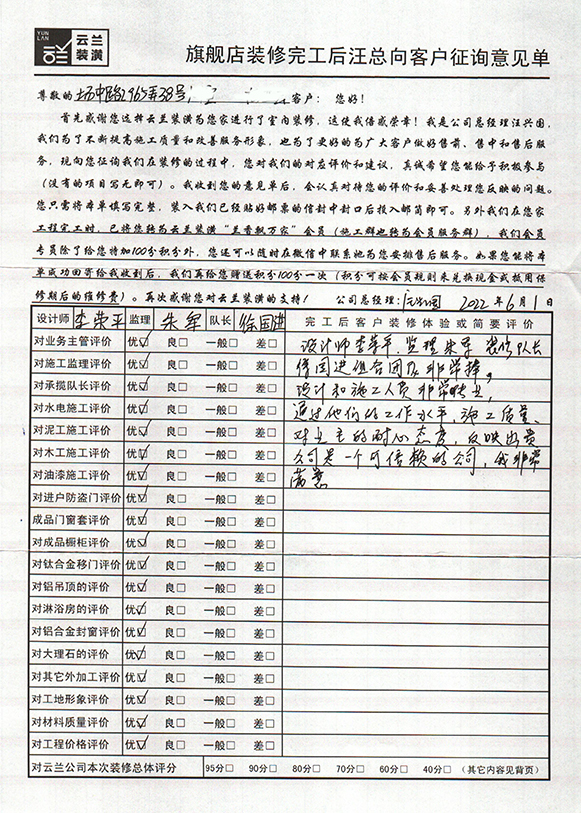 YUN LAN
云兰装潢
旗舰店装修完工后汪总向客户征询意见单
尊敬的 场中路2965弄38号 客户： 您好！
首先感谢您选择云兰装潢为您家进行了室内装修，这使我倍感荣幸！我是公司总经理汪兴国，
我们为了不断提高施工质量和改善服务形象，也为了更好的为广大客户做好售前、售中和售后服
务，现向您征询我们在装修的过程中，您对我们的对应评价和建议，真诚希望您能给予积极参与
（没有的项目写无即可）。我收到您的意见单后，会认真对待您的评价和妥善处理您反映的问题。
您只需将本单填写完整，装入我们已经贴好邮票的信封中封口后投入邮筒即可。另外我们在您家
工程完工时，已将您转为云兰装潢“兰香飘万家”会员（施工群也转为会员服务群），我们会员
专员除了给您特加100分积分外，您还可以随时在微信中联系她为您安排售后服务。如果您能将本
单成功回寄给我收到后，我们再给您赠送积分100分一次（积分可按会员规则来兑换现金或抵用保
修期后的维修费）。再次感谢您对云兰装潢的支持！ 公司总经理： 汪兴国 2022年6月1日
设计师 李荣平 监理 朱军 队长 徐国进 完工后客户装修体验或简要评价
对业务主管评价 优☑ 良□ 一般□ 差□ 设计师李荣平、监理朱军 装修队长
对施工监理评价 优☑ 良□ 一般□ 差□ 徐国进组合团队非常棒，
对承揽队长评价 优☑ 良□ 一般□ 差□ 设计和施工人员非常敬业，
对水电施工评价 优☑ 良□ 一般□ 差□ 通过他们的工作水平，施工质量、
对泥工施工评价 优☑ 良□ 一般□ 差□ 对业主的耐心态度，反映出贵
对木工施工评价 优☑ 良□ 一般□ 差□ 公司是一个可信赖的公司，我非常
对油漆施工评价 优☑ 良□ 一般□ 差□ 满意
对进户防盗门评价 优☑ 良□ 一般□ 差□
成品门窗套评价 优☑ 良□ 一般□ 差□
对成品橱柜评价 优☑ 良□ 一般□ 差□
对钛合金移门评价 优☑ 良□ 一般□ 差□
对铝吊顶的评价 优☑ 良□ 一般□ 差□
对淋浴房的评价 优☑ 良□ 一般□ 差□
对铝合金封窗评价 优☑ 良□ 一般□ 差□
对大理石的评价 优☑ 良□ 一般□ 差□
对其它外加工评价 优☑ 良□ 一般□ 差□
对工地形象评价 优☑ 良□ 一般□ 差□
对材料质量评价 优☑ 良□ 一般□ 差□
对工程价格评价 优☑ 良□ 一般□ 差□
对云兰公司本次装修总体评分 95分□ 90分□ 80分□ 70分□ 60分□ 40分□ （其它内容见背页）